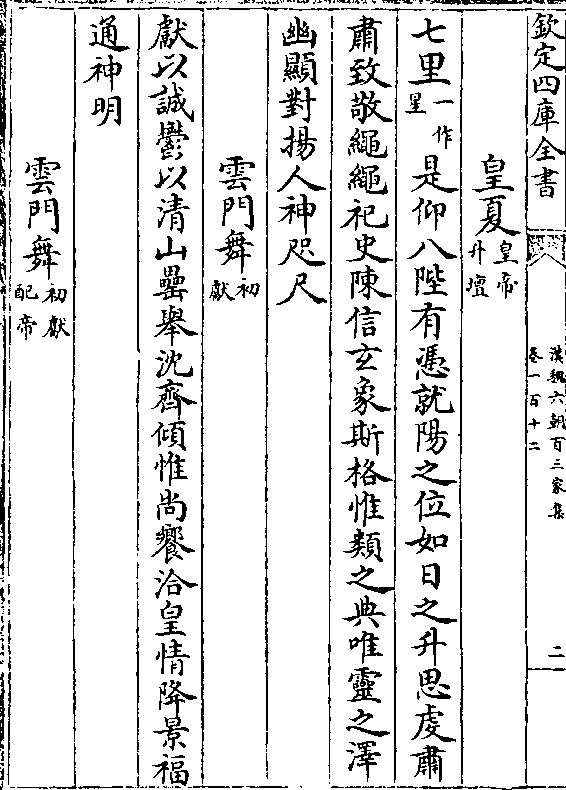 欽定四庫全書
漢魏六朝百三家集
卷一百十二
二
皇夏皇帝升壇
七里一作星是仰八陛有憑就陽之位如日之升思虔肅
肅致敬繩繩祀史陳信玄象斯格惟類之典唯靈之澤
幽顯對揚人神咫尺
雲門舞初獻
獻以誠鬱以清山罍舉沈齊傾惟尚饗洽皇情降景福
通神明
雲門舞初獻配帝